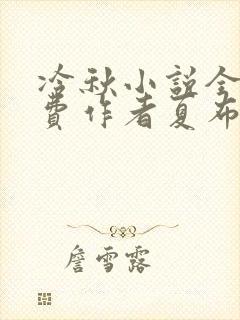 冷秋小說全
費作者夏布
詹雪露